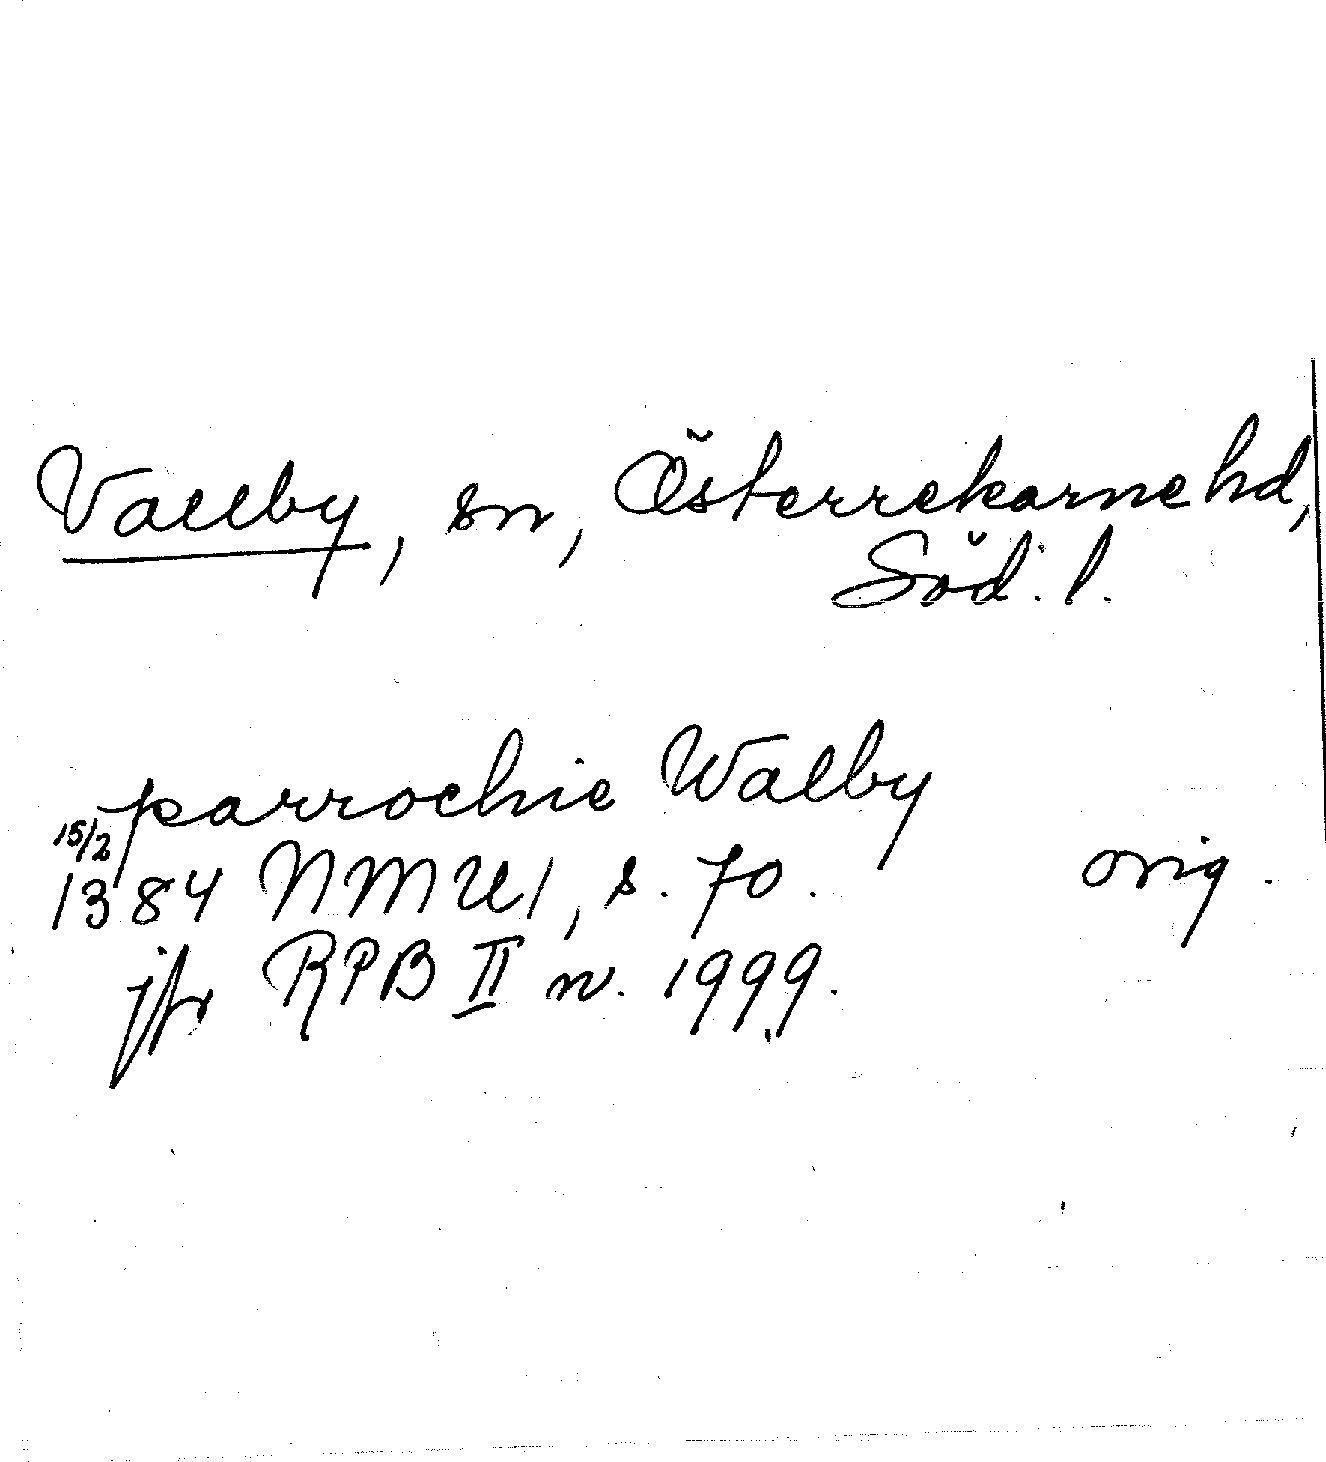 Vallby, sn, Österrekarne hd,
Söd. l.
parrochie Walby
15/2
1384 NMU 1, s. 70. orig.
jfr RPB II n. 1999.